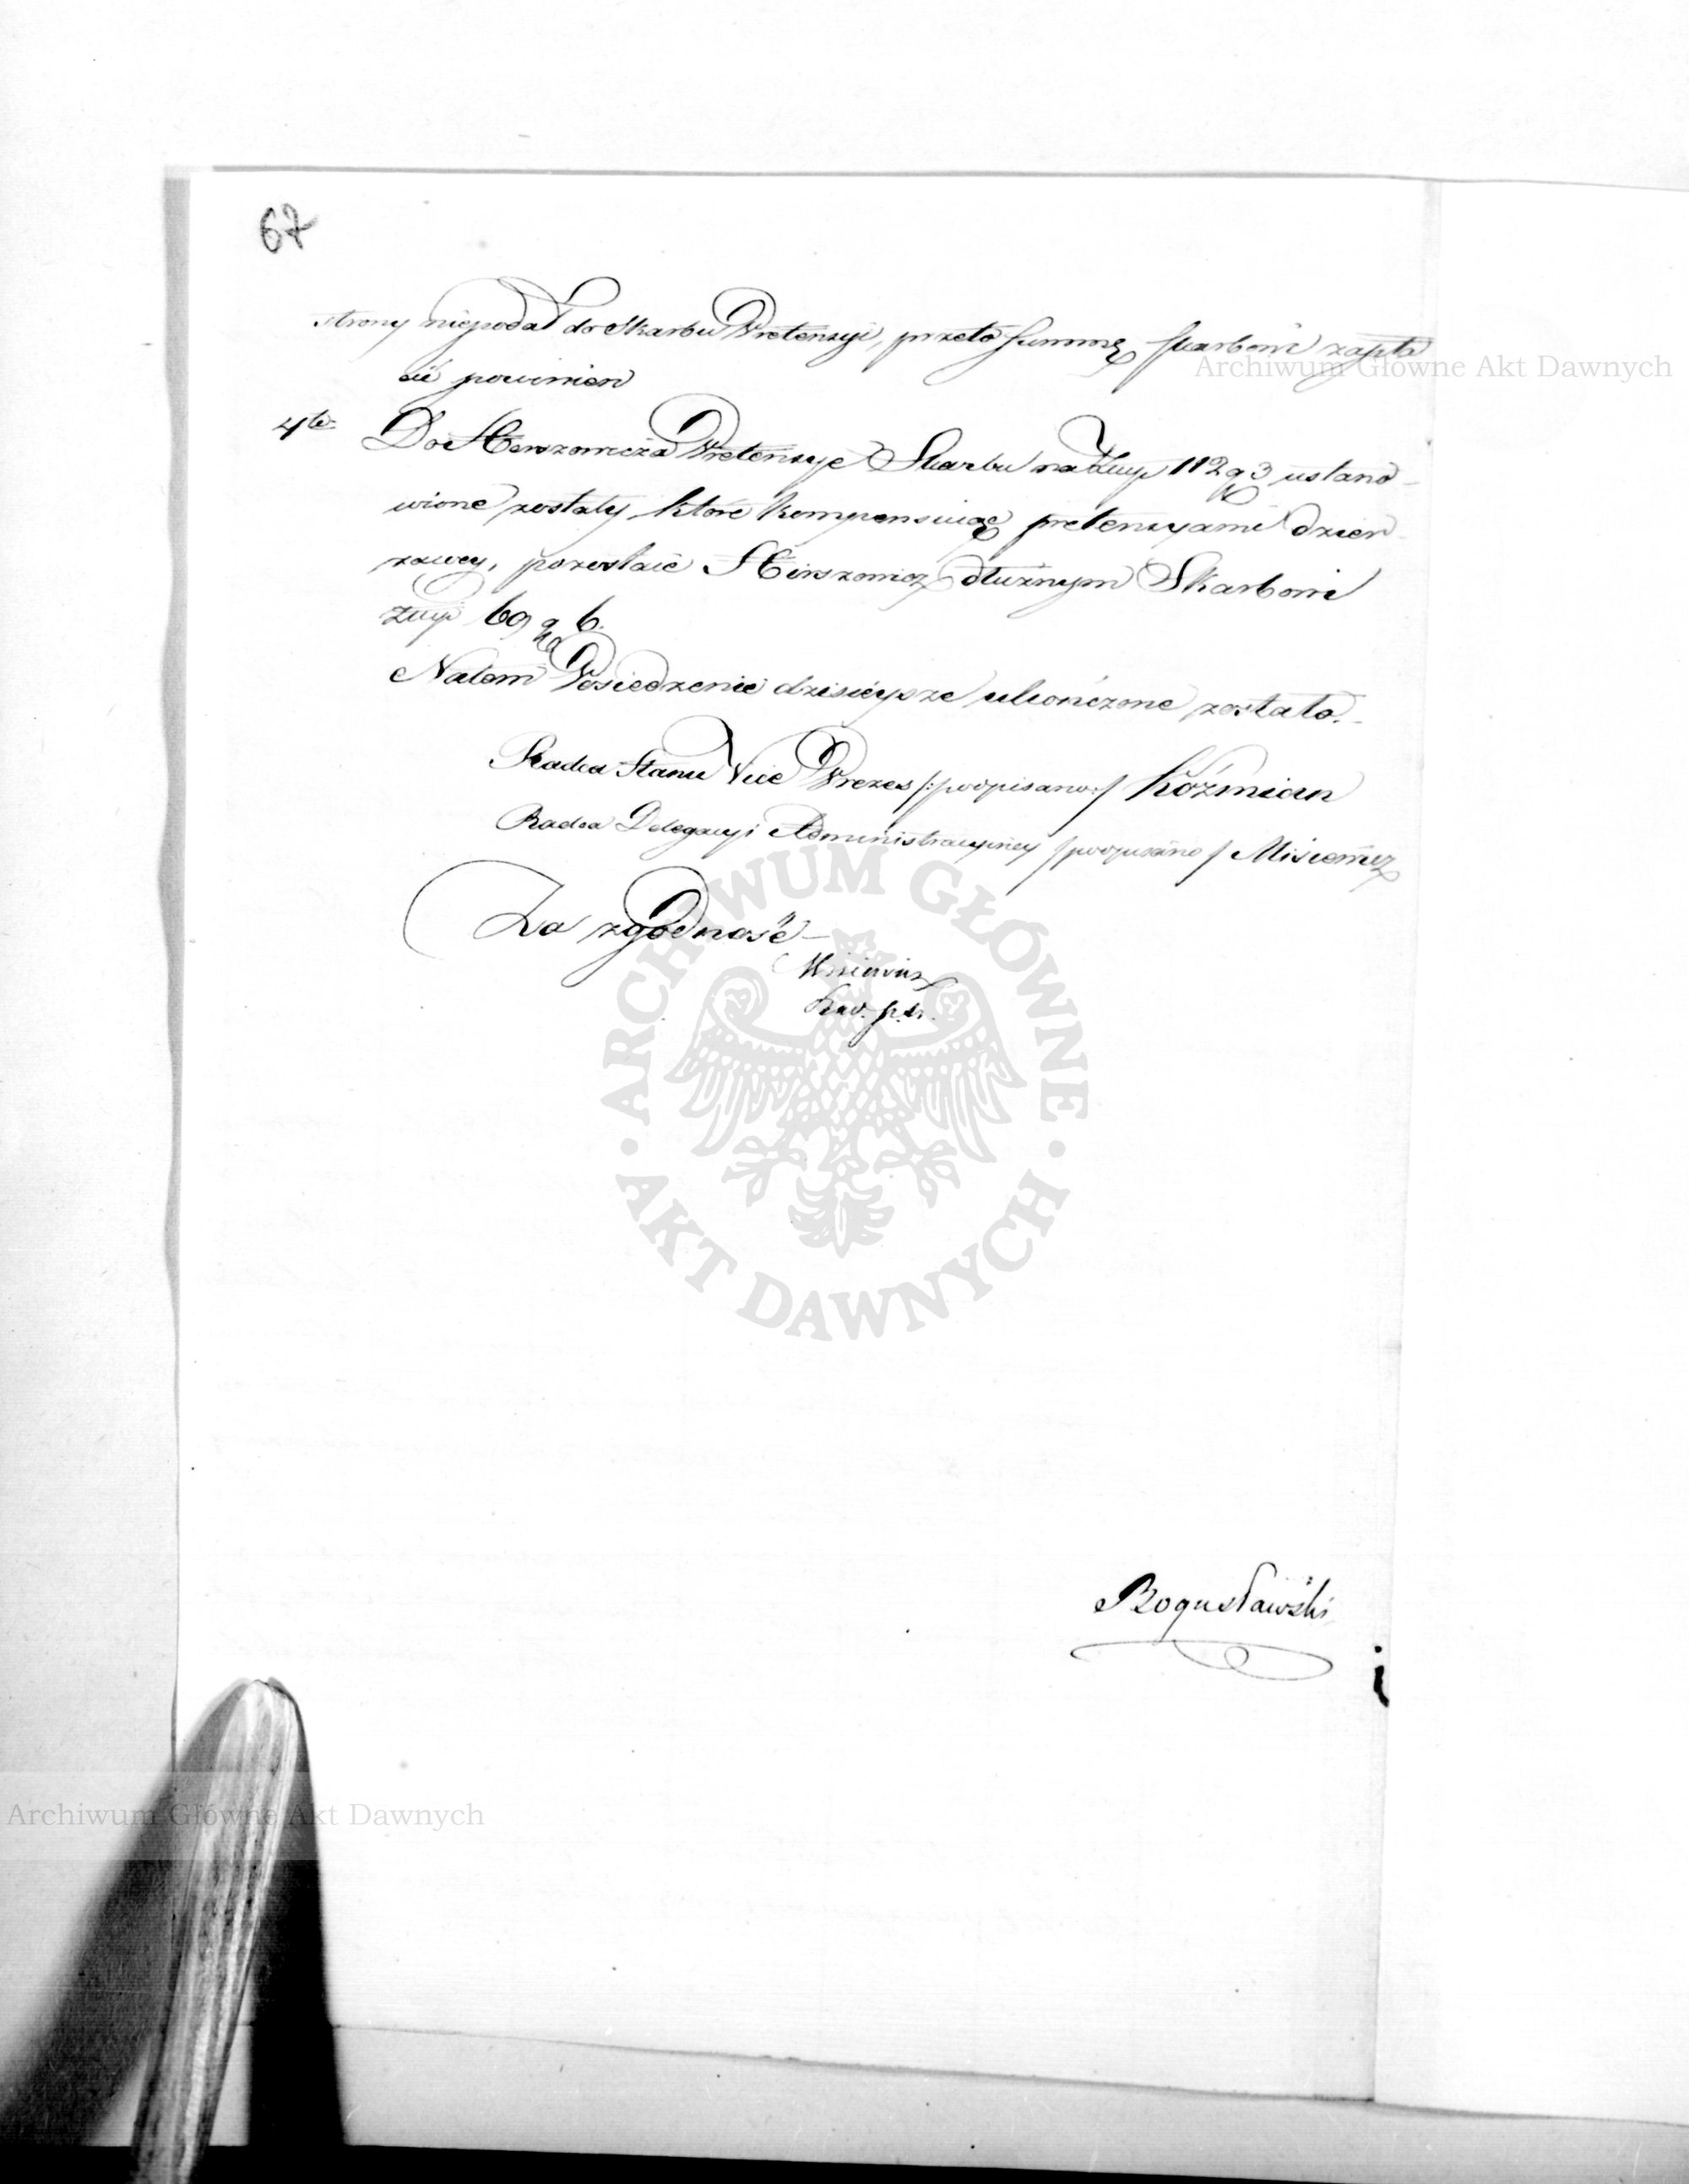 67
strony niepodał do Skarbu Pretensyi, przeto summę Skarbowi zapła
cić powinien
4to Do Herszowicza Pretensye Skarbu na Złłp 112 g 3 ustano-
wione zostały które kompensuiąc pretensyami dzier-
żawcy, pozostaie Herszowicz dłużnym Skarbowi
Złłp 69 g 6.
Natem Posiedzenie dzisieysze ukończone zostało.
Radca Stanu Vice Prezes /:podpisano:/ Koźmian
Radca Delegacyi Administracyiney /podpisano/ Misiewicz
Za zgodność
Misiewicz
Bogusławski
Archiwum Główne Akt Dawnych
ARCHIWUM GŁÓWNE · AKT DAWNYCH ·
Archiwum Główne Akt Dawnych